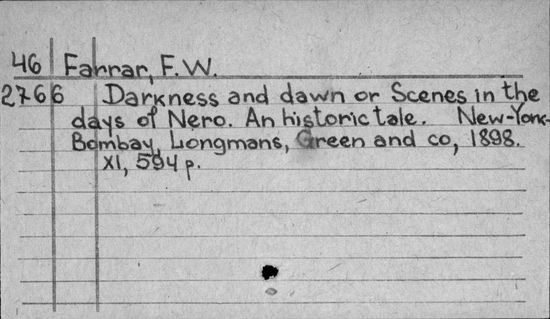 46 Farrar, F.W.
2766 Darkness and dawn or Scenes in the
days of Nero. An historic tale. New-York-
Bombay, Longmans, Green and co, 1898.
XI, 594 p.